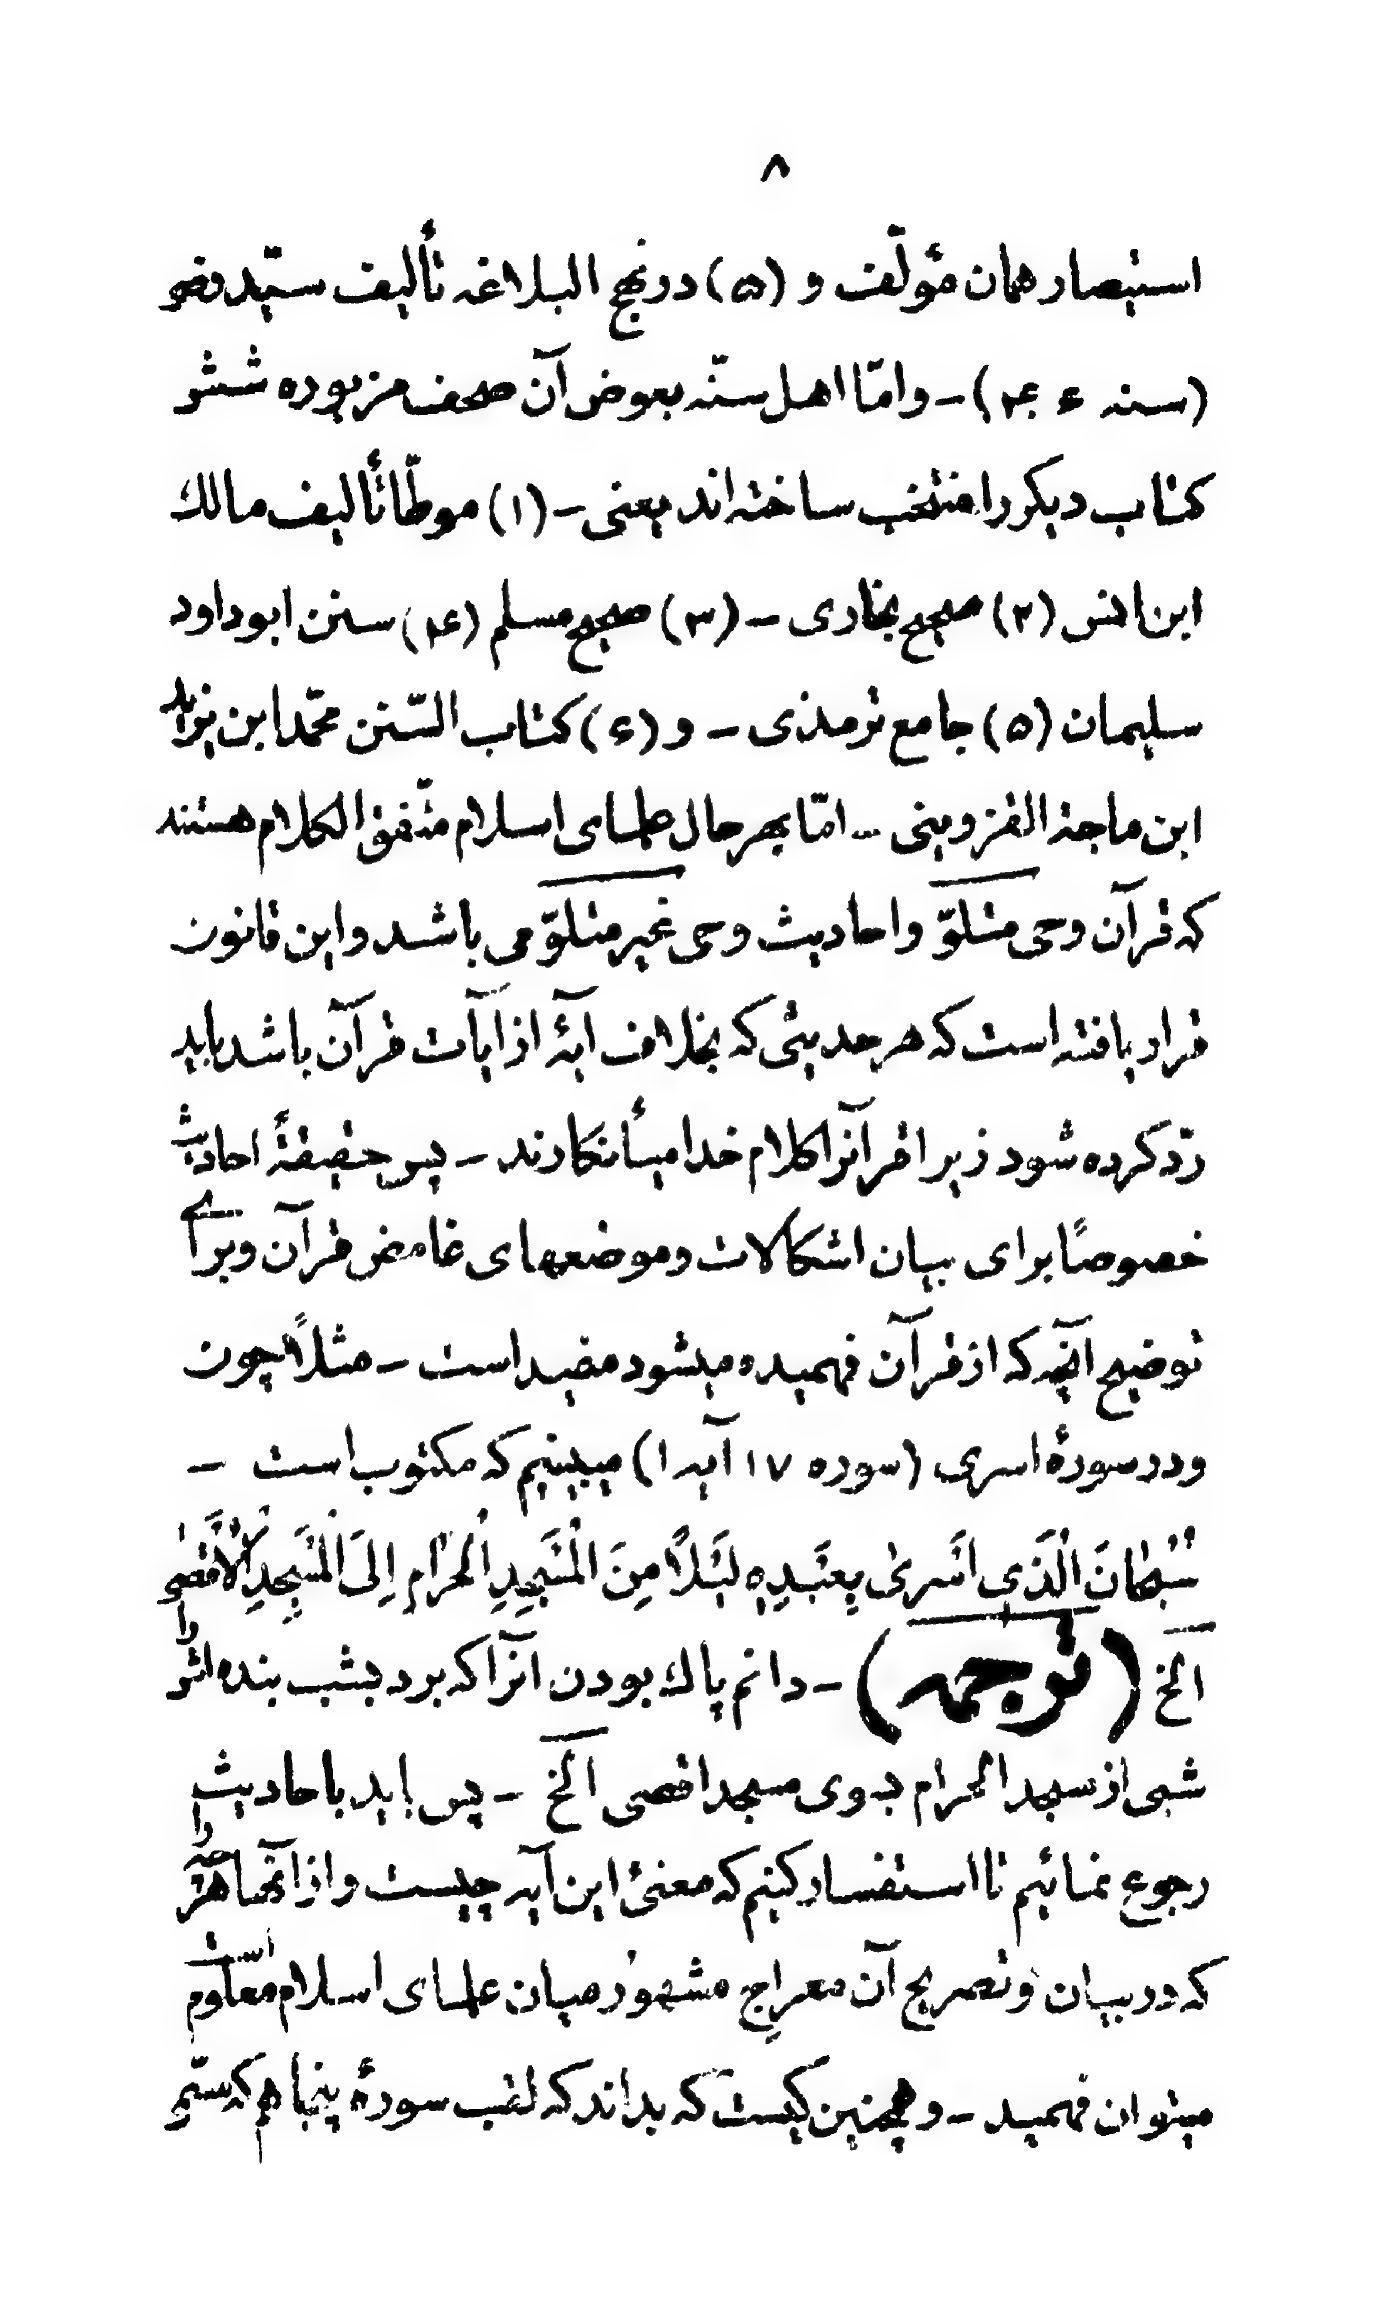 ۸
استبصار همان مؤلّف و (۵) در نهج البلاغه تألیف سیّد رضی
(سنه ۴۰۶) - و امّا اهل سنّه بعوض آن صحف مزبوره شش
کتاب دیکر را منتخب ساخته اند یعنی - (۱) موطّا تألیف مالك
ابن انس (۲) صحیح بخاری - (۳) صحیح مسلم (۴) سنن ابو داود
سلیمان (۵) جامع ترمذی - و (۶) کتاب السّنن محمّد ابن یزید
ابن ماجة القزوینی - امّا بهر حال علمای اسلام متّفق الکلام هستند
که قرآن وحی متلوّ و احادیث وحی غیر متلوّ می باشد و این قانون
قرار یافته است که هر حدیثی که بخلاف آیهٔ از ایآت قرآن باشد باید
ردّ کرده شود زیرا قرآنرا کلام خدا میأنکارند - پس حقیقةً احادیث
خصوصًا برای بیان اشکالات و موضعهای غامض قرآن و برای
توضیح آنچه که از قرآن فهمیده میشود مفید است - مثلاً چون
و در سورهٔ اسری (سوره ۱۷ آیه ۱) میبینیم که مکتوب است -
سُبْحَانَ الَّذِي أَسْرىٰ بِعَبْدِهِ لَيْلًا مِنَ الْمَسْجِدِ الْحَرَامِ إِلَى الْمَسْجِدِ الْأَقْصَى
الخ (ترجمه) - دانم پاك بودن آنرا که برد بشب بنده اش را
شبی از مسجد الحرام بسوی مسجد اقصی الخ - پس باید باحادیث
رجوع نمائیم تا استفسار کنیم که معنیٔ این آیه چیست و از آنها هر آنچه را
که در بیان و تصریح آن معراجِ مشهور میان علمای اسلام معلوم است
میتوان فهمید - و همچنین کیست که بداند که لقب سورهٔ پنجاهم که مسمّی